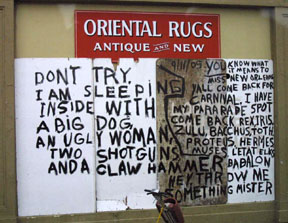 ORIENTAL RUGS
ANTIQUE AND NEW
DONT TRY.
I AM SLEEPING
INSIDE WITH
A BIG DOG,
AN UGLY WOMAN,
TWO SHOTGUNS
AND A CLAW HAMMER
YOU KNOW WHAT
IT MEANS TO
MISS NEW ORLEANS
YALL COME BACK FOR
CARNIVAL. I HAVE
MY PARARADE SPOT
COME BACK REX IRIS,
ZULU, BACCHUS, TOTH
PROTEUS, HERMES
MUSES LETAT ELKS
BABALON
HEY THROW ME
SOMETHING MISTER